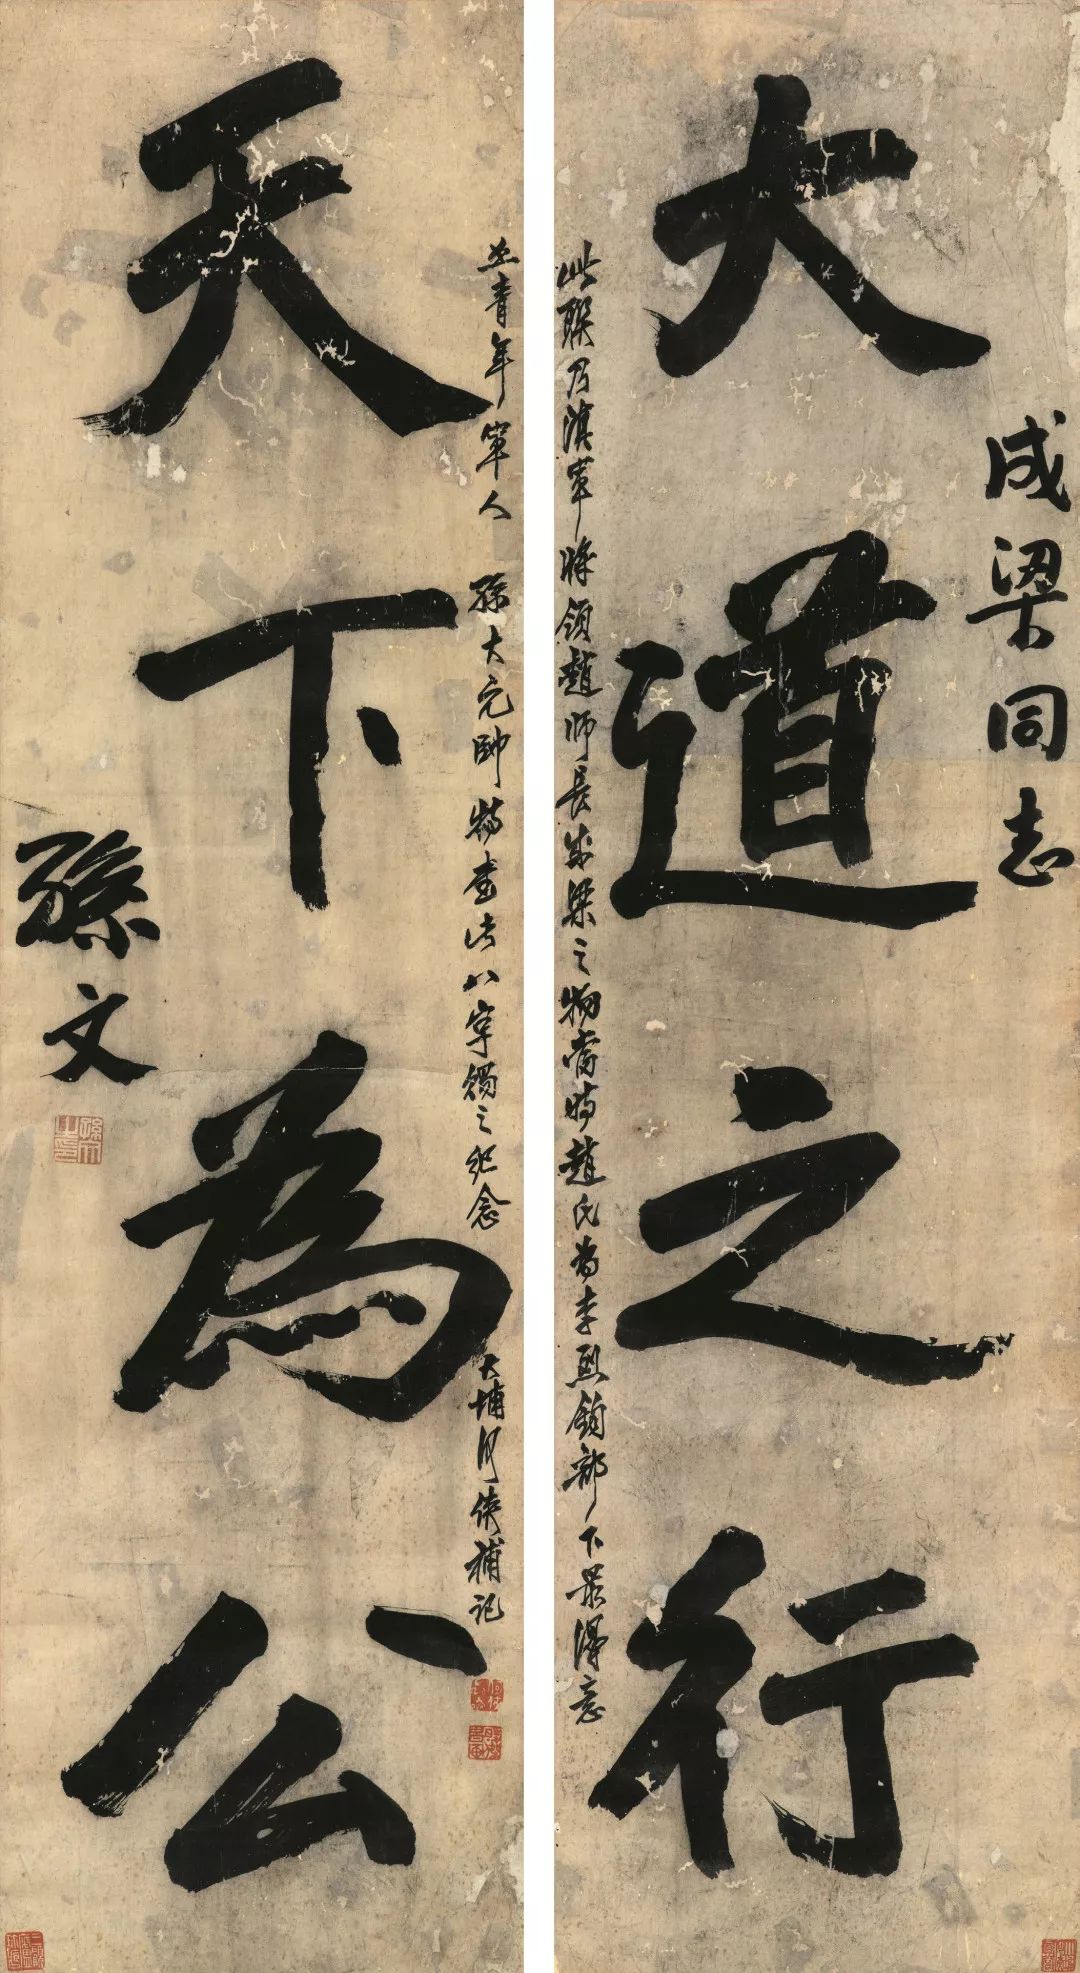 成梁同志
大道之行
此聯乃滇軍將領趙師長成梁之物當時趙氏為李烈鈞部下最得意
之青年軍人 孫大元帥特書此八字獨之紀念 大埔何俠補記
天下為公
孫文